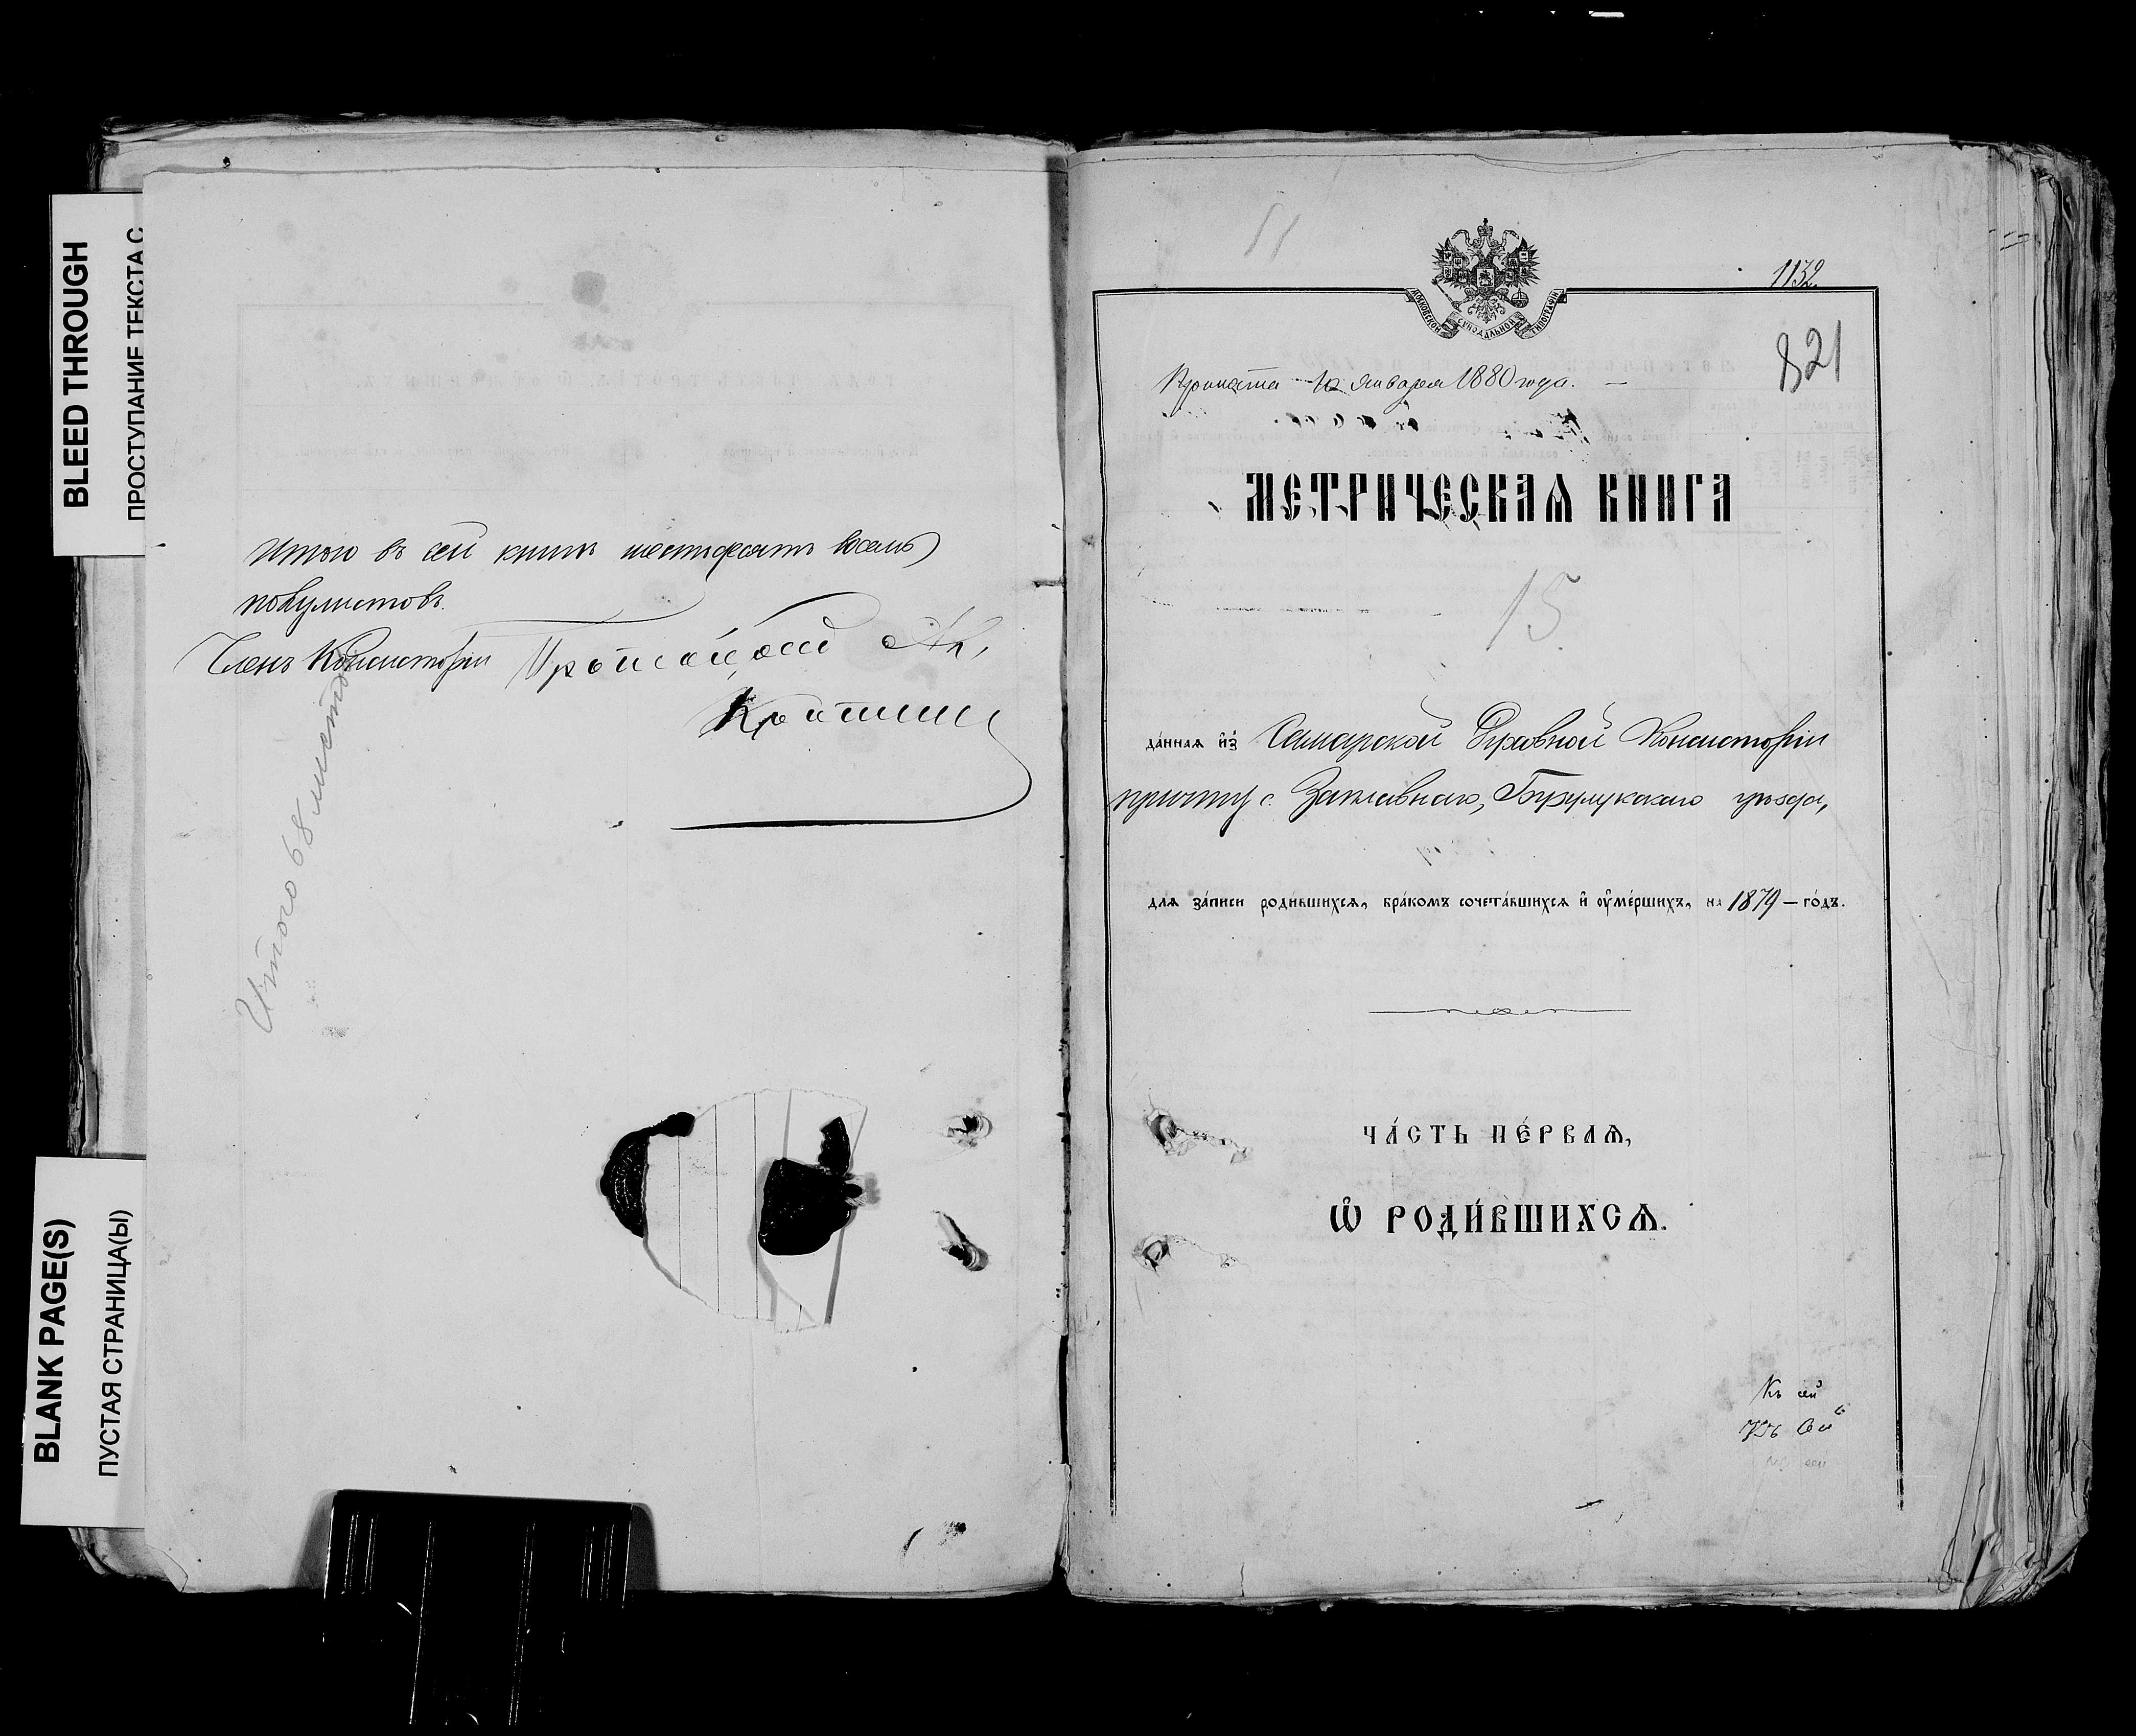 BLEED THROUGH
ПРОСТУПАНИЕ ТЕКСТА С
BLANK PAGE(S)
ПУСТАЯ СТРАНИЦА(Ы)
Итого въ сей книгѣ шестьдесятъ восемь
полулистовъ.
Членъ Консисторіи Протоіерей
Итого 68 листовъ
1132.
МОСКОВСКОЙ СѴНОДАЛЬНОЙ ТИПОГРАФІИ
821
Принята 10 Января 1880 года.
МЕТРИЧЕСКАѦ КНИГА
15
да́ннаѧ и҆з̾ Самарской Духовной Консисторіи
причту с. Заплавнаго, Бузулукскаго уѣзда,
длѧ за́писи роди́вшихсѧ, бра́комъ сочета́вшихсѧ и҆ ᲂу҆ме́ршихъ, на 1879 – го́дъ.
ЧА́СТЬ ПЕ́РВАѦ,
Ѽ РОДИ́ВШИХСѦ.
Къ сей
Къ сей